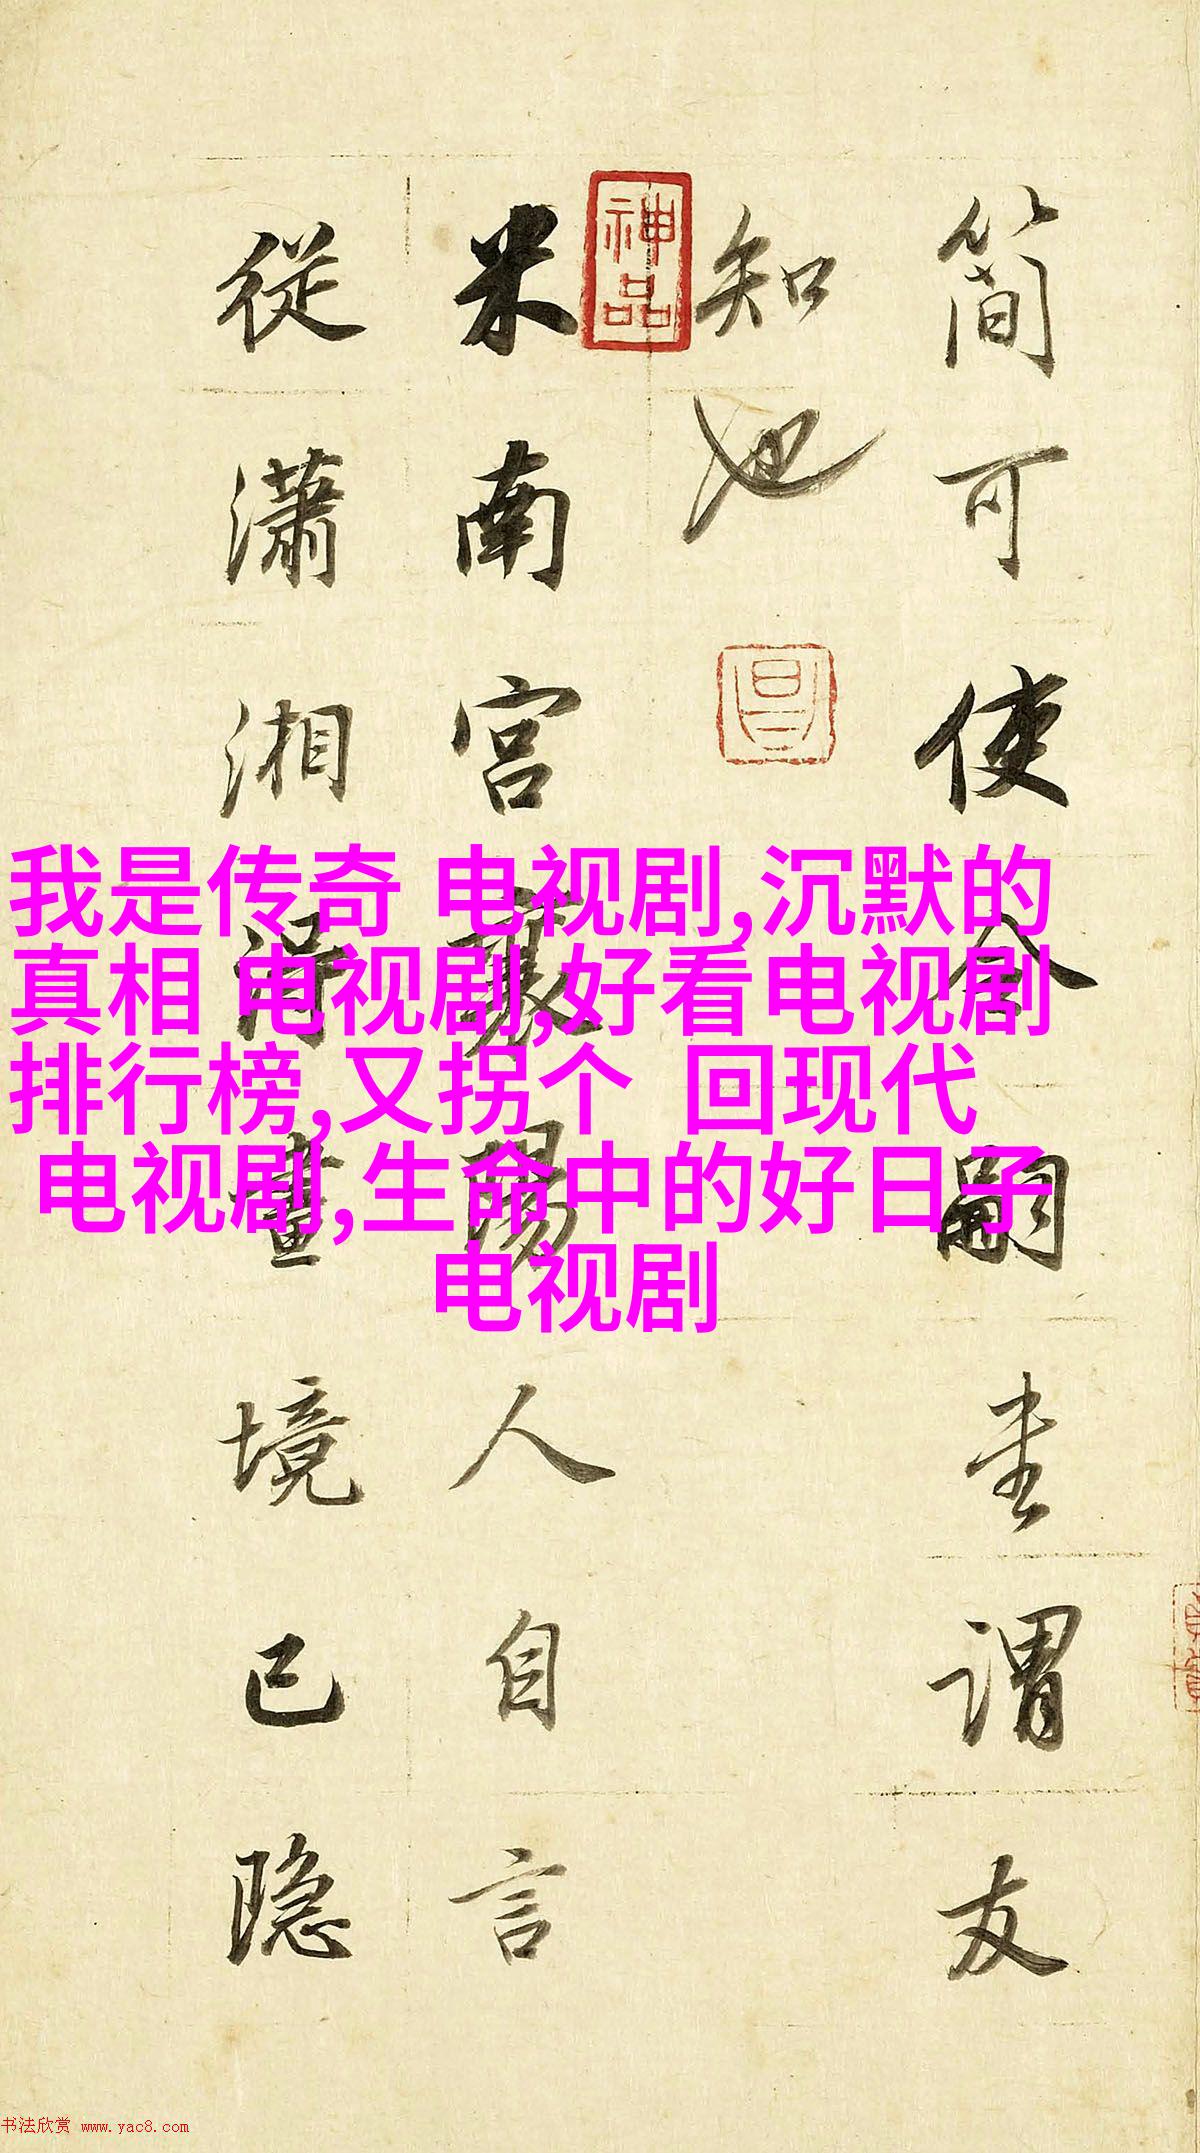 簡可使令嗣畫謂友
知也
米南宮襄陽人自言
從瀟湘得畫境已隱
神品
我是传奇 电视剧,沉默的
真相 电视剧,好看电视剧
排行榜,又拐个 回现代
电视剧,生命中的好日子
电视剧
书法欣赏 www.yac8.com